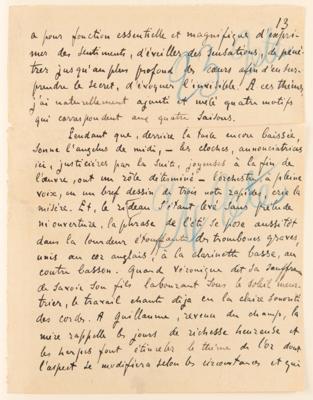 13
a pour fonction essentielle et magnifique d'expri-
mer des sentiments, d'éveiller des sensations, de péné-
trer jusqu'au plus profond des cœurs afin d'en sur-
prendre le secret, d'évoquer l'invisible. A ces thèmes,
j'ai naturellement ajouté et mêlé quatre motifs
qui correspondent aux quatre saisons.
Pendant que, derrière la toile encore baissée,
sonne l'angelus de midi, — les cloches, annonciatrices
ici, justicières par la suite, joyeuses à la fin de
l'œuvre, ont un rôle déterminé — l'orchestre, à pleine
voix, en un bref dessin de trois notes rapides, crie la
misère. Et, le rideau s'étant levé sans prélude
ni ouverture, la phrase de l'été se pose aussitôt
dans la lourdeur étouffante des trombones graves,
unis au cor anglais, à la clarinette basse, au
contre basson. Quand Véronique dit sa souffrance
de savoir son fils labourant sous le soleil meur-
trier, le travail chante déjà en la claire sonorité
des cordes. A Guillaume, revenu du champ, la
mère rappelle les jours de richesse heureuse et
les harpes font étinceler le thème de l'or dont
l'aspect se modifiera selon les circonstances et qui